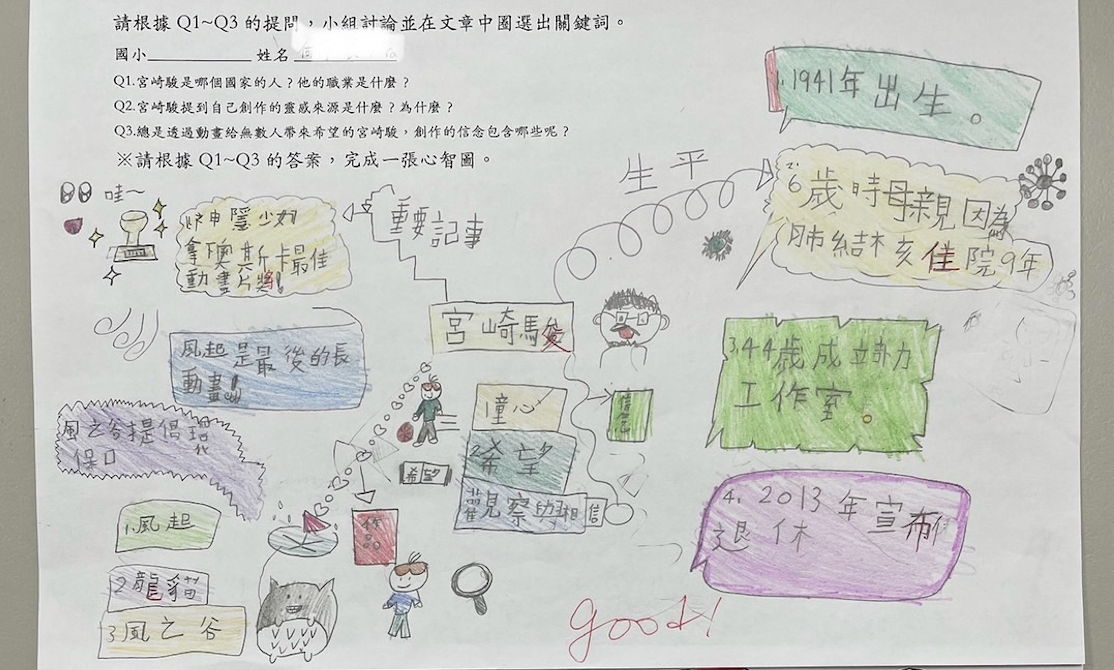 請根據 Q1~Q3 的提問，小組討論並在文章中圈選出關鍵詞。
國小 姓名
Q1.宮崎駿是哪個國家的人？他的職業是什麼？
Q2.宮崎駿提到自己創作的靈感來源是什麼？為什麼？
Q3.總是透過動畫給無數人帶來希望的宮崎駿，創作的信念包含哪些呢？
※請根據 Q1~Q3 的答案，完成一張心智圖。
哇～
神隱少女
拿下奧斯卡最佳
動畫片獎!
重要記事
風起是最後的長
動畫!!
風之谷提倡環
保
宮崎駿
生平
1.1941年出生。
2.
6歲時母親因為
肺結核住院9年
3.44歲成立吉卜力
工作室。
4. 2013年宣布
退休
信念
1童心
2希望
觀察的相信
希望
作品
1.風起
2龍貓
3風之谷
good!